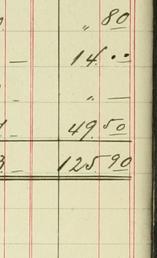 „ 80
— 14. ••
— „ —
— 49.50
3 — 125 90